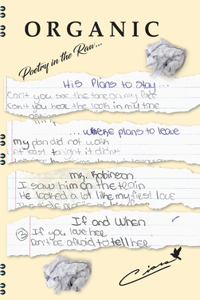 ORGANIC
Poetry in the Raw...
His Plans to Stay...
Can't you see the tone on my face
Can't you hear the look in my tone
...where plans to leave
my plan did not work
Mr. Robinson
I saw him on the train
He looked a lot like my first love
If and When
② If you love her
Don't be afraid to tell her